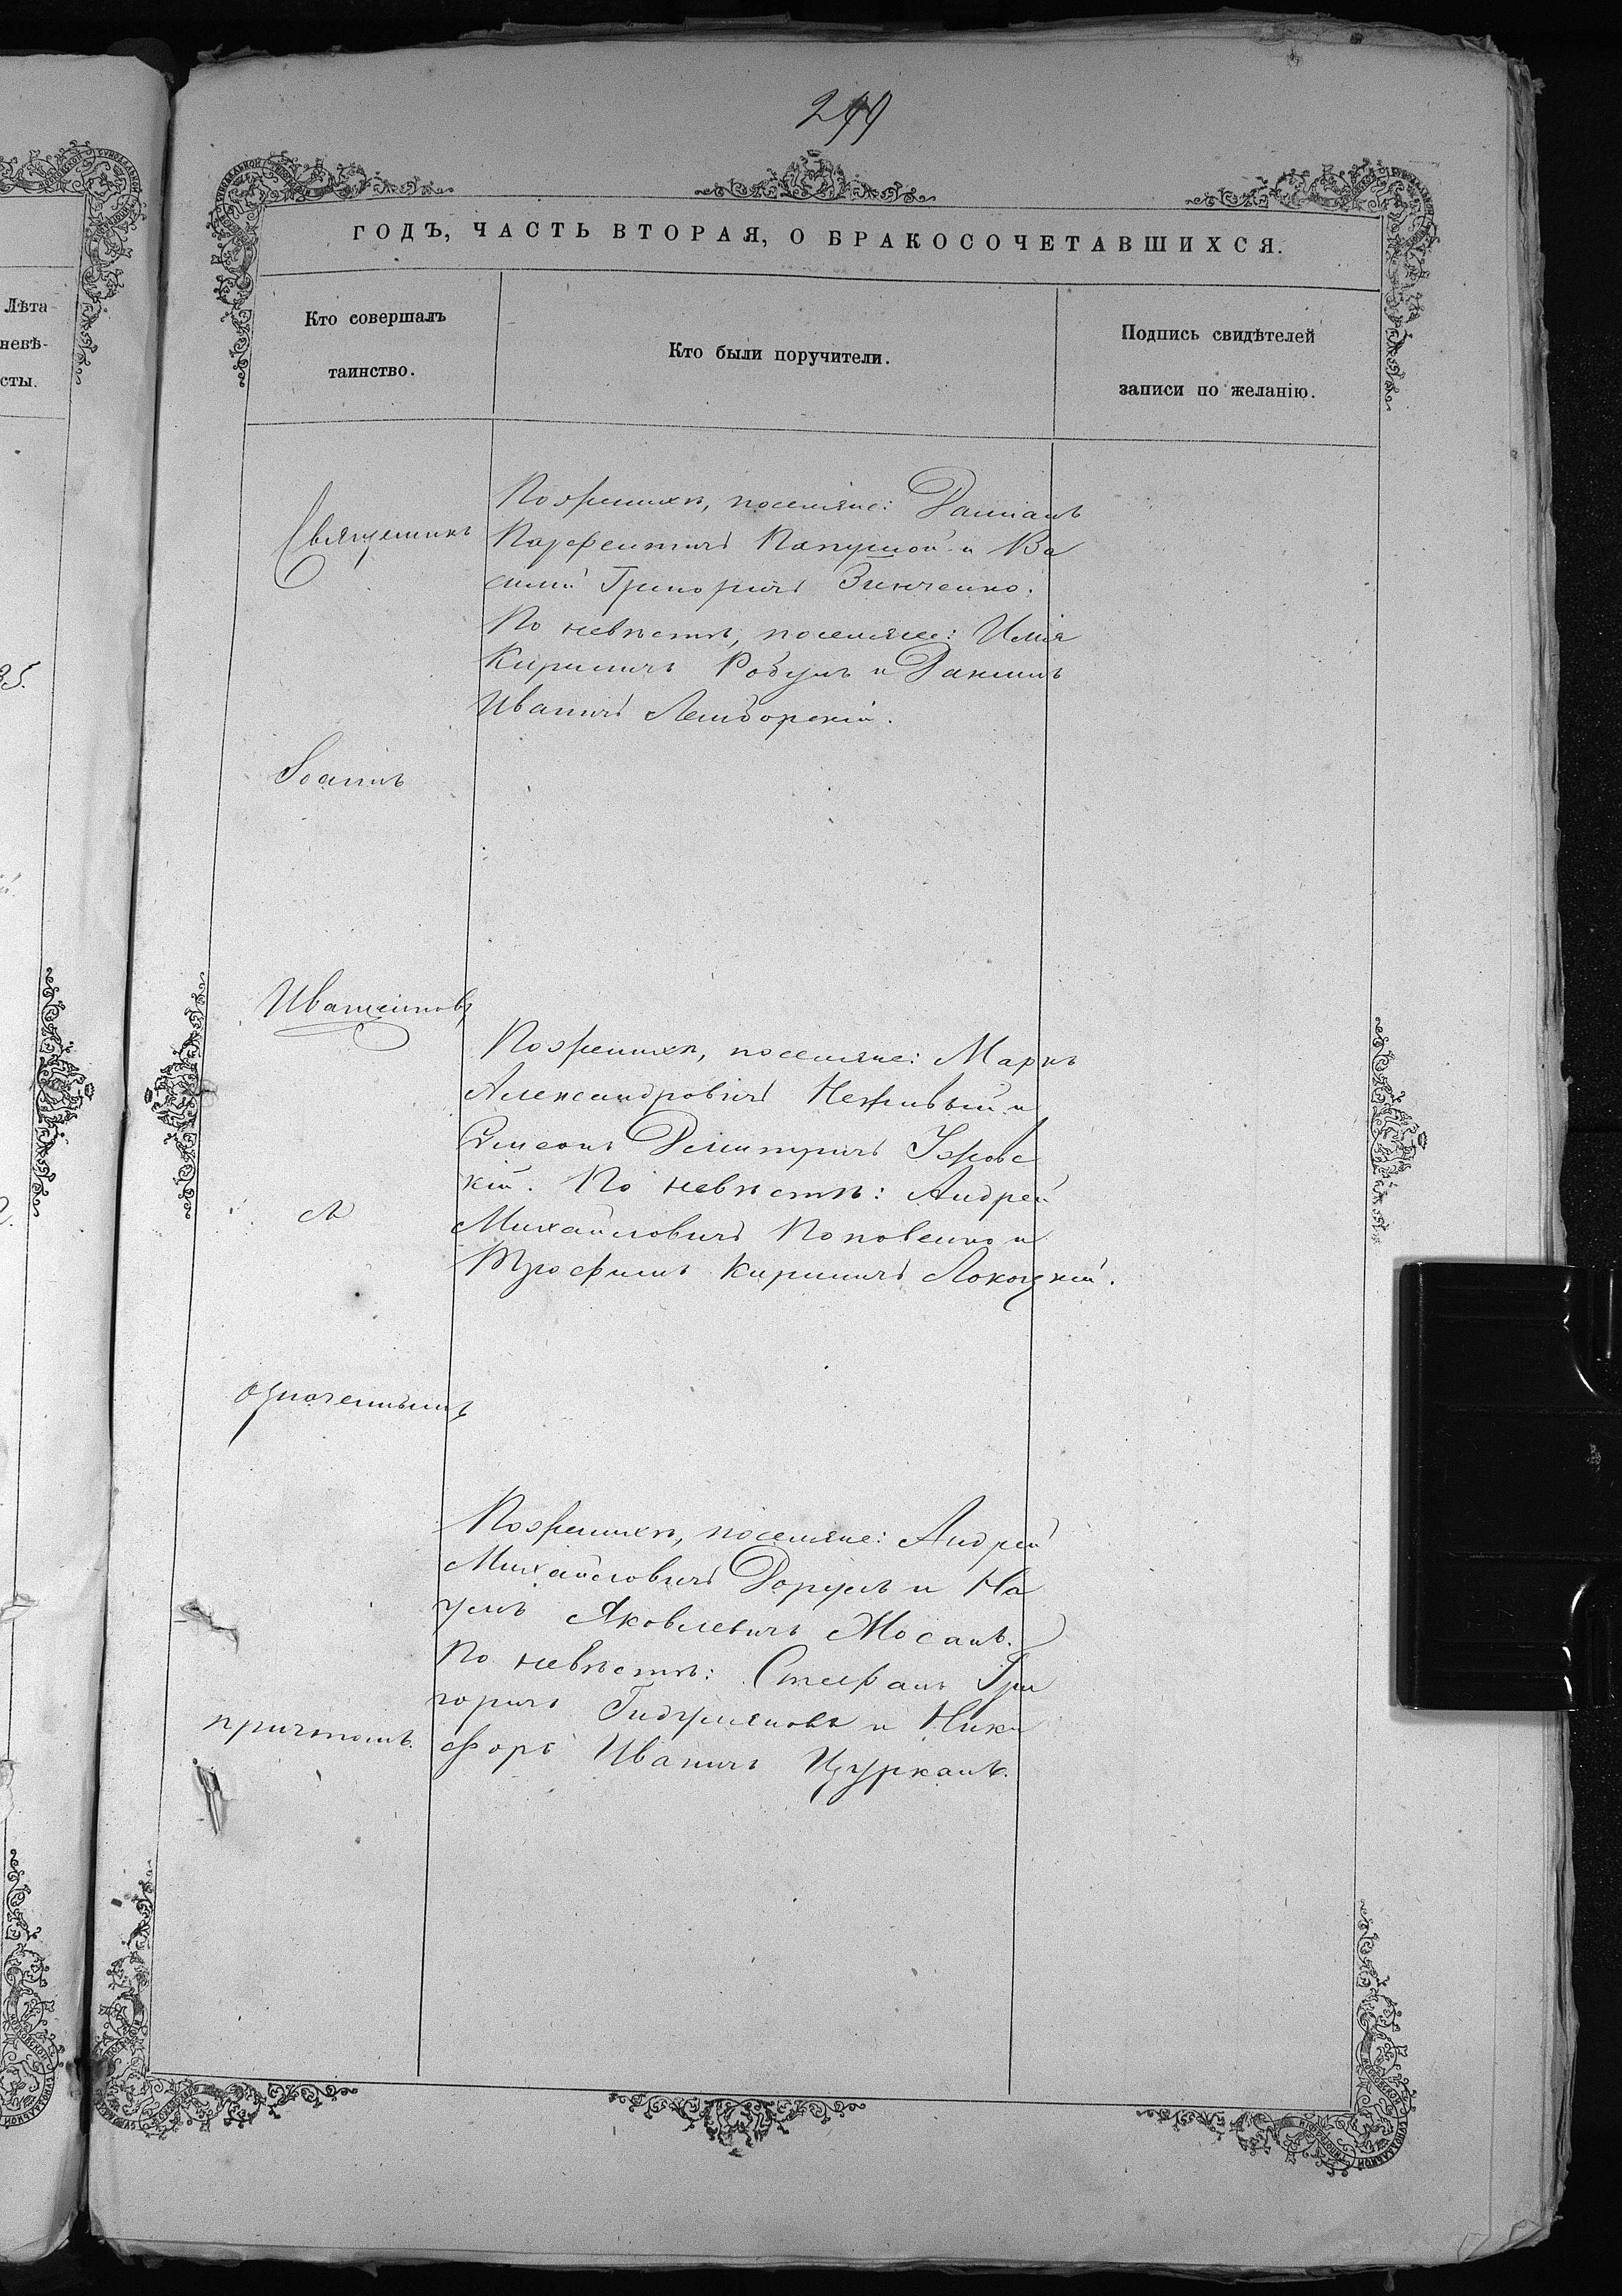 299
ГОДЪ, ЧАСТЬ ВТОРАЯ, О БРАКОСОЧЕТАВШИХСЯ.
Лѣта
невѣ-
сты.
Кто совершалъ
таинство.
Кто были поручители.
Подпись свидѣтелей
записи по желанію.
35.
Священникъ
Іоаннъ
Иващенковъ
съ
означеннымъ
причтомъ.
По женихѣ, поселяне: Даміанъ
Парфеничъ Папушой и Ва
силій Григоричъ Зинченко.
По невѣстѣ, поселяне: Илія
Кириличъ Робулъ и Даніилъ
Иваничъ
По женихѣ, поселяне: Маркъ
Александровичъ Неживый и
Симеонъ Димитричъ
кій. По невѣстѣ: Андрей
Михайловичъ Поповенко и
Трофимъ Кириличъ Локоцкій.
По женихѣ, поселяне: Андрей
Михайловичъ Дорулъ и На
умъ Яковлевичъ Мосанъ.
По невѣстѣ: Стефанъ Гри
горичъ Гидуляновъ и Ники
форъ Иваничъ Цурканъ.